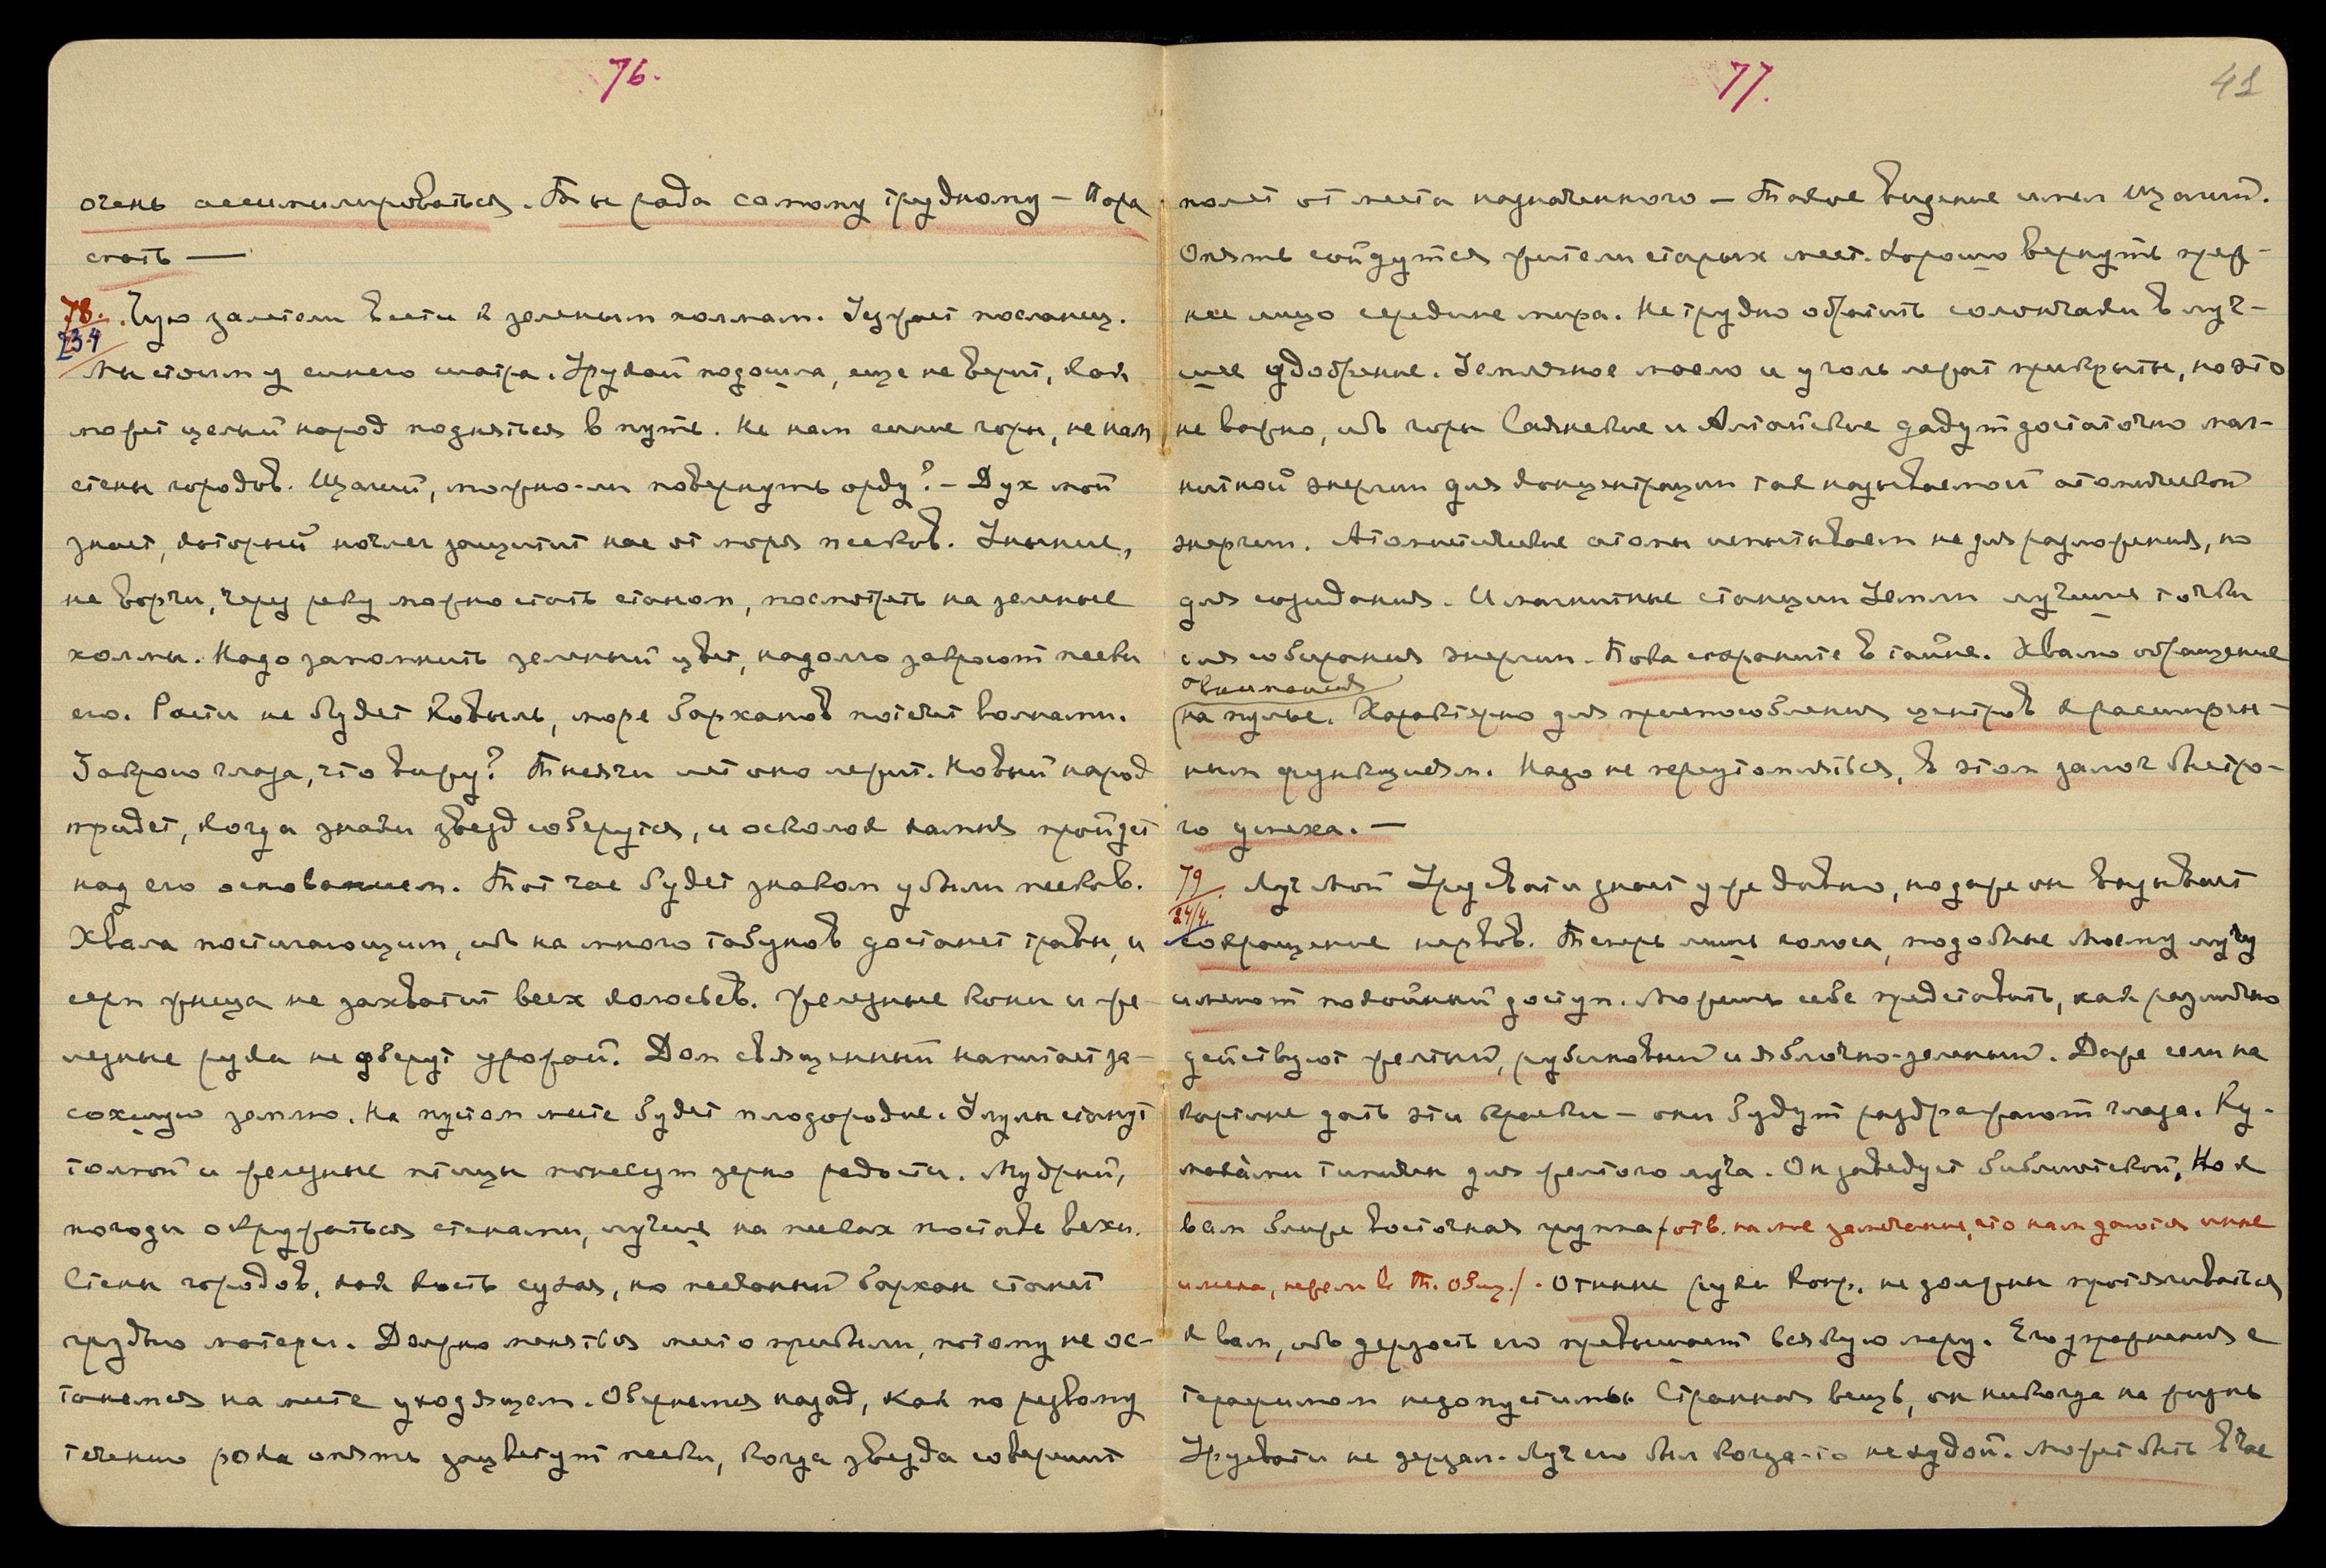 76.
очень ассимилироваться. Ты рада самому трудному – Пора
спать —
78. Чую залетели вести к зеленым холмам. Уезжает посланец.
234
Мы стоим у синего шатра. Урукай подошла, еще не верит, как
может целый народ подняться в путь. Не нам синие горы, не нам
стены городов. Щалий, можно-ли повернуть орду? – Дух мой
знает, который ночлег защитит нас от моря песков. Уныние,
не ворчи, через реку можно стать станом, посмотреть на зеленые
холмы. Надо запомнить зеленый цвет, надолго закроют пески
его. Расти не будет ковыль, море барханов потечет волнами.
Закрою глаза, что вижу? Тысячи лет оно лежит. Новый народ
придет, когда знаки звезд соберутся, и осколок камня пройдет
над его основанием. Тот час будет знаком убыли песков.
Хвала постигающим, ибо на много табунов достанет травы, и
серп жнеца не захватит всех колосьев. Железные кони и же-
лезные руки не уберут урожай. Дом священный напитает за-
сохшую землю. На пустом месте будет плодородие. Улусы станут
толпой и железные птицы понесут зерно радости. Мудрый,
погоди окружаться стенами, лучше на песках поставь вехи.
Стены городов, как кость сухая, но песчаный бархан станет
грудью матери. Должно меняться место прибыли, потому не ос-
танемся на месте уходящем. Обернемся назад, как по резвому
течению рока опять зацветут пески, когда звезда совершит
77.
41
полет от места назначенного – Такое видение имел Щалий.
Опять сойдутся жители старых мест. Хорошо вернуть преж-
нее лицо середине мира. Не трудно обратить солончаки в луч-
шее удобрение. Земляное масло и уголь лежат прикрыты, но это
не важно, ибо горы Саянские и Алтайские дадут достаточно маг-
нитной энергии для концентрации так называемой атомической
энергии. Атомистические атомы испытываем не для разложения, но
для созидания. И магнитные станции Земли лучшие точки
для собирания энергии. Пока сохраните в тайне. Хвалю обращение
внимания
на пульс. Характерно для приспособления центров к расширен-
ным функциям. Надо не переутомляться, в этом залог быстро-
го успеха. —
79. Луч Мой Урусвати знает уже давно, подаже он вызывает
24/4.
сокращение нервов. Теперь лишь голоса, подобные Моему лучу
имеют покойный доступ. Можешь себе представить, как различно
действуют желтый, рубиновый и яблочно-зеленый. Даже если на
картине дать эти краски – они будут раздражают глаза. Ку-
мовами типичен для желтого луча. Он заведует библиотекой, Но к
вам ближе восточная группа /отв. на мое замечание, что нам даются иные
имена, нежели в Т. Общ./. Отныне руки Конр. не должны протягиваться
к вам, ибо дерзость его превышает всякую меру. Его упражнения с
терафимом недопустимы Странная вещь, он никогда на жизнь
Урусвати не дерзал. Луч его был когда-то не худой. Может быть в час